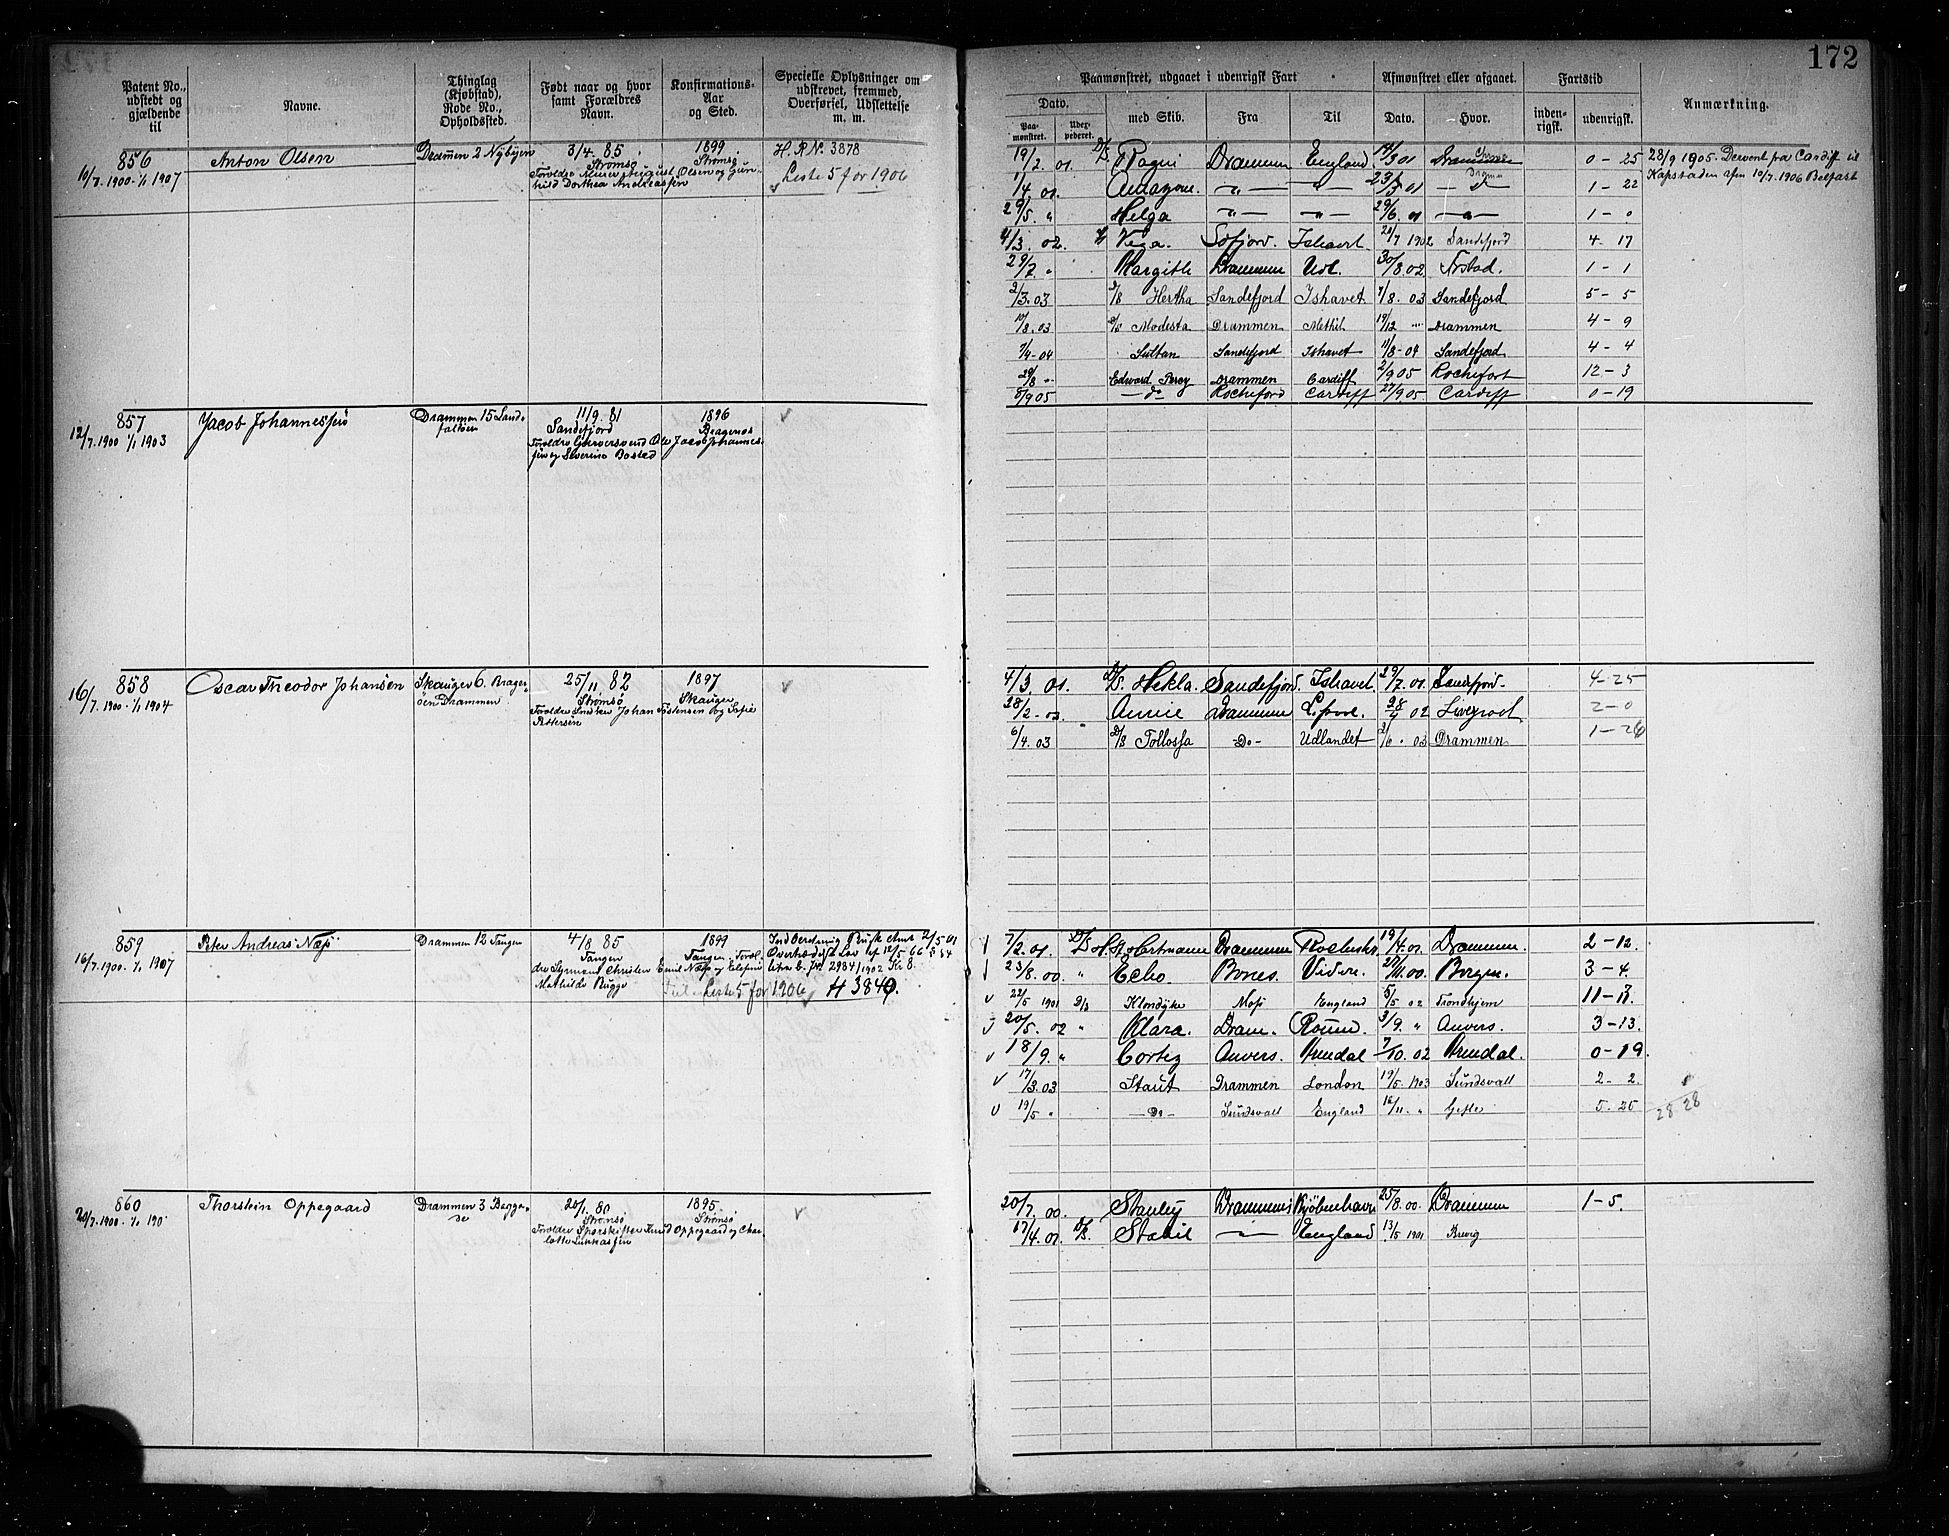 172
Patent No., udstedt og gjældende til
Navne.
Thinglag (Kjøbstad), Rode No., Opholdssted.
Født naar og hvor samt Forældres Navn.
Konfirmations-Aar og Sted.
Specielle Oplysninger om udskrevet, fremmed, Overførsel, Udslettelse m. m.
Paamønstret, udgaaet i udenrigsk Fart
Afmønstret eller afgaaet.
Fartstid
Anmærkning.
Dato.
Paamønstret.
Udexpederet.
med Skib.
Fra
Til
Dato.
Hvor.
indenrigsk.
udenrigsk.
856
10/7. 1900 - 1/1 1907
Anton Olsen
Drammen 2 Nybyen
3/4. 85
Strømsø
Forældre Murer August Olsen og Gunhild Dorthea Andreassen
1899
Strømsø
H. R No. 3878
Liste 5 for 1906
19/2. 01. D/S Ragni Drammen England 14/3 01 Drammen 0 - 25
28/9 1905. Dervent fra Cardiff til
Kapstaden afm 10/7. 1906 Belfast
1/4. 01. Amazone. — " — 23/5 01 1 - 22
29/5. " Helga — " — — " — 29/6. 01 — " — 1 - 0
4/3. 02. Vega. Ishavet. 21/7 1902 Sandefjord 4 - 17
29/7. " Margith Drammen Udl. 30/8 02 1 - 1
2/3. 03 D/S Hertha Sandefjord Ishavet 7/8. 03 Sandefjord 5 - 5
10/8. 03 D/S Modesta Drammen Methil 19/12 " Drammen 4 - 9
7/4 - 04 Sultan Sandefjord Ishavet 11/8 - 04 Sandefjord 4 - 4
29/8 " Edward Percy Drammen Cardiff 2/9 05 Rochefort 12 - 3
8/9 05 — do — Rocheford Cardiff 27/9 05 Cardiff 0 - 19
857
12/7. 1900 1/1 1903
Jacob Johannessen
Drammen 15 Landfaltøen
11/9. 81
Sandefjord
Forældre Garversvend Ole Jacob Johannessen og Severine Bosted
1896
Bragenes
858
16/7. 1900 - 1/1 1904
Oscar Theodor Johansen
Skauger 6. Bragerøen Drammen
25/11. 82
Strømsø
Forældre Snedker Johan Tostensen og Sofie Pettersen
1897
Skauger
4/3. 01. D/S. Hekla Sandefjord. Ishavet 29/7. 01. Sandefjord. 4 - 25
28/2 - 02 Annie Drammen 28/4 02 Liverpool 2 - 0
6/4. 03 D/S Follosja - Do - Udlandet 2/6. 03 Drammen 1 - 26
859
16/7. 1900. 1/1 1907
Peter Andreas Næss
Drammen 12 Tangen
4/8 85
Tangen
Forældre Styrmand Christian Emil Næss og Elefine Mathilde Rugge
1899
Tangen
Indberetning Busk Amt 2/5 01
litra b. Jnl 2984/1902 Kr 8.
Liste 5 for 1906 H 3849.
7/2. 01. D/S H. Hartmann Drammen 19/4. 01. Drammen. 2 - 12.
23/8. 00. " Echo. Bones. Vidre. 27/11. 00. Bergen. 3 - 4.
22/5 1901 D/S Klondyke Moss England 5/5 02 Trondhjem
20/5. 02 " Klara. Dram. Rouen. 3/9. " Anvers. 3 - 13.
18/9. " Cortez Anvers. Arendal 7/10. 02 Arendal. 0 - 19.
17/3. 03 Staut Drammen London 19/5. 1903 Sundsvall 2 - 2.
19/5 " — Do — Sundsvall England 16/11. " Gefle 5 - 25
28 28
860
20/7. 1900. 1/1 190
Thorstein Oppegaard
Drammen 3 Beggede
20/1. 80
Strømsø
Forældre Sporskifter Knud Oppegaard og Charlotte Lukkassen
1895
Strømsø
20/7. 00. Stanley Drammen Kjøbenhavn 25/8. 00. Drammen 1 - 5.
17/4. 01 D/S. Stabil — " — England 13/5 1901 Brevig